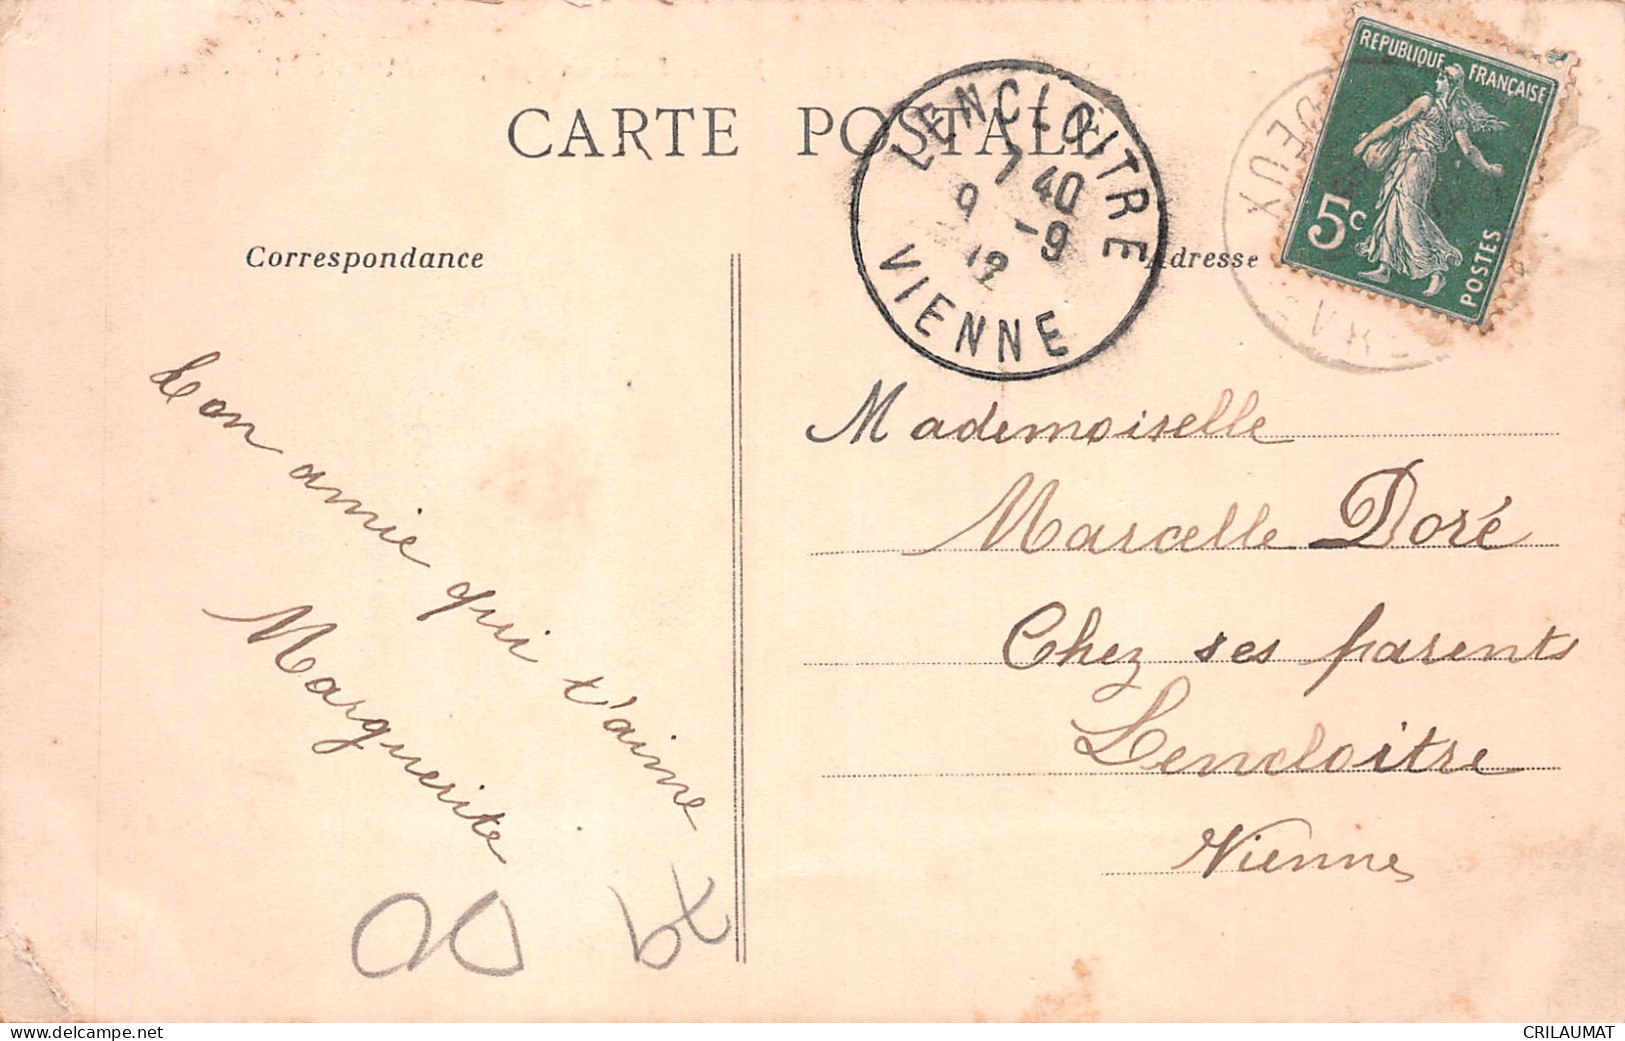 CARTE POSTALE
Correspondance
Adresse
LENCLOITRE
7 40
9 -9
12
VIENNE
REPUBLIQUE FRANÇAISE
5c
POSTES
Ton amie qui t'aime
Marguerite
Mademoiselle
Marcelle Doré
Chez ses parents
Lencloitre
Vienne
www.delcampe.net
CRILAUMAT